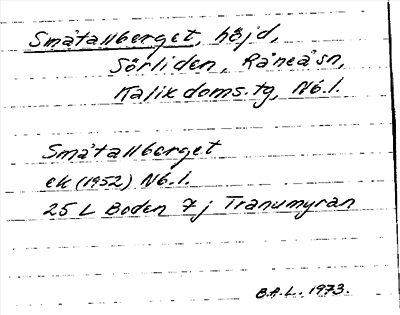 Småtallberget, höjd,
Sörliden, Råneå sn,
Kalix doms. tg, Nb. l.
Småtallberget
ek (1952) Nb. l.
25 L Boden 7 j Tranumyran
B.A.L. 1973.